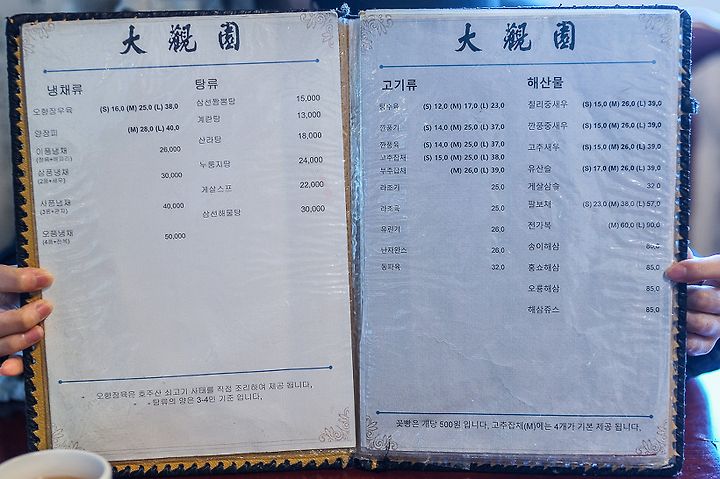 大觀園
냉채류
오향장우육 (S) 16,0 (M) 25,0 (L) 38,0
양장피 (M) 28,0 (L) 40,0
이품냉채 26,000
(장육+해파리)
삼품냉채 30,000
(2품+새우)
사품냉채 40,000
(3품+관자)
오품냉채 50,000
(4품+전복)
탕류
삼선짬뽕탕 15,000
계란탕 13,000
산라탕 18,000
누룽지탕 24,000
게살스프 22,000
삼선해물탕 30,000
- 오향장육은 호주산 쇠고기 사태를 직접 조리하여 제공 됩니다.
- 탕류의 양은 3-4인 기준 입니다.
大觀園
고기류
탕수육 (S) 12,0 (M) 17,0 (L) 23,0
깐풍기 (S) 14,0 (M) 25,0 (L) 37,0
깐풍육 (S) 14,0 (M) 25,0 (L) 37,0
고추잡채 (S) 15,0 (M) 25,0 (L) 38,0
부추잡채 (M) 26,0 (L) 39,0
라조기 25,0
라조육 25,0
유린기 26,0
난자완스 26,0
동파육 32,0
해산물
칠리중새우 (S) 15,0 (M) 26,0 (L) 39,0
깐풍중새우 (S) 15,0 (M) 26,0 (L) 39,0
고추새우 (S) 15,0 (M) 26,0 (L) 39,0
유산슬 (S) 17,0 (M) 26,0 (L) 39,0
게살삼슬 32,0
팔보채 (S) 23,0 (M) 38,0 (L) 57,0
전가복 (M) 60,0 (L) 90,0
송이해삼 80,0
홍쇼해삼 85,0
오룡해삼 85,0
해삼쥬스 85,0
꽃빵은 개당 500원 입니다. 고추잡채(M)에는 4개가 기본 제공 됩니다.